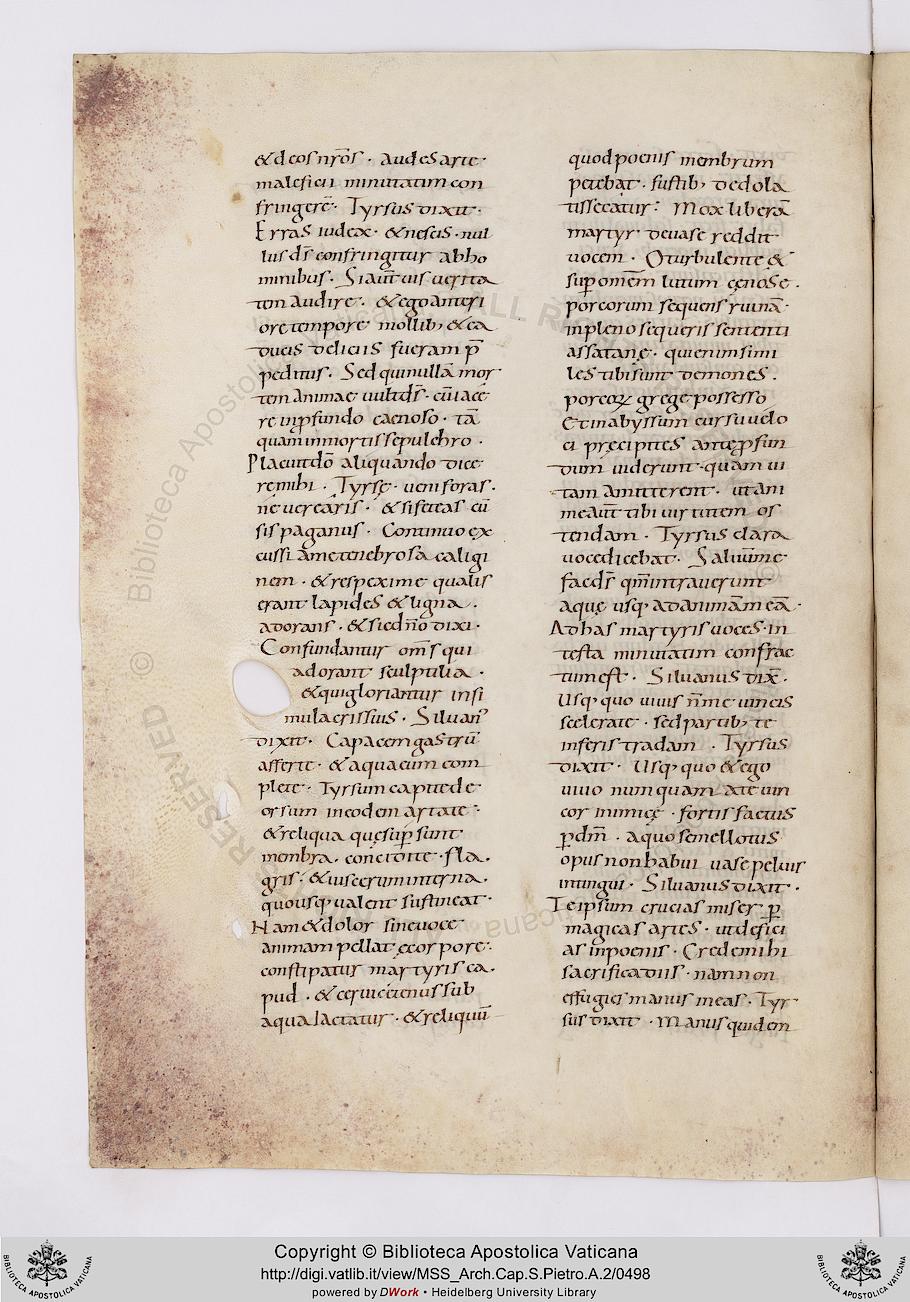 & deos nr̅os · Audes arte ·
malefici minutatim con
fringere · Tyrsus dixit ·
Erras iudex · & nescis · nul
lus ds̅ confringitur ab ho
minibus · Si aut̅ uis uerita
tem audire · & ego anteri
ore tempore mollib; & ca
ducis deliciis fueram p̅
peditus · Sed qui nullā mor
tem animae uult ds̅ · cū iace
re in ꝓfundo caenoso · tā
quam in mortis sepulchro ·
Placuit dō aliquando dice
re mihi · Tyrsę · ueni foras ·
ne uerearis · & si sceleas cū
sis paganus · Continuo ex
cussi a me tenebrosa caligi
nem · & respexi me qualis
erant lapides & ligna ·
adorans · & sic dn̅o dixi ·
Confundantur om̅s qui
adorant sculptilia ·
& qui gloriantur in si
mulacris suis · Siluan'
dixit · Capacem gastrū
afferte · & aqua eum com
plete · Tyrsum capite de
orsum in eodem artate ·
& reliqua que sup̅ sunt
membra · concidite · fla ·
gris · & uiscerum interna ·
quo usq; ualent sustineat ·
Nam & dolor sine uoce
animam pellat e corpore ·
constipatur martyris ca ·
pud · & ceruice tenus sub
aqua iactatur · & reliquū
quod poenis membrum
patebat · fustib; dedola
tis secatur · Mox liberā
martyr de uase reddit
uocem · O turbulente &
sup̅ om̅em lutum cęnose ·
porcorum sequens ruinā ·
in pleno sequeris sententi
as satanę · qui enim simi
les tibi sunt demones ·
porcoꝝ grege possesso
Et in abyssum cursu uelo
ci pręcipites ante ꝓfun
dum uiderunt · quam ui
tam amitterent · ut ani
me aut̅ tibi uirtutem os
tendam · Tyrsus clara
uoce dicebat · Saluum me
fac ds̅ qm̅ intrauerunt
aquę usq; ad animam eā ·
Ad has martyris uoces · in
testa minutatim confrac
tum est · Siluanus dix̅ ·
Usq; quo uiuis n̅ me uincis
scelerate · sed partib; te
inferis tradam · Tyrsus
dixit · Usq; quo & ego
uiuo numquam a te uin
cor inimicę · fortis factus
ꝑ dm̅ · a quo semel lotus
opus non habui uase peluis
intingui · Siluanus dixit ·
Te ipsum crucias miser ꝑ
magicas artes · ut defici
as in poenis · Crede mihi
sacrifica diis · nam non
effugies manus meas · Tyr
sus dixit · Manus quidem
Copyright © Biblioteca Apostolica Vaticana
http://digi.vatlib.it/view/MSS_Arch.Cap.S.Pietro.A.2/0498
powered by DWork • Heidelberg University Library